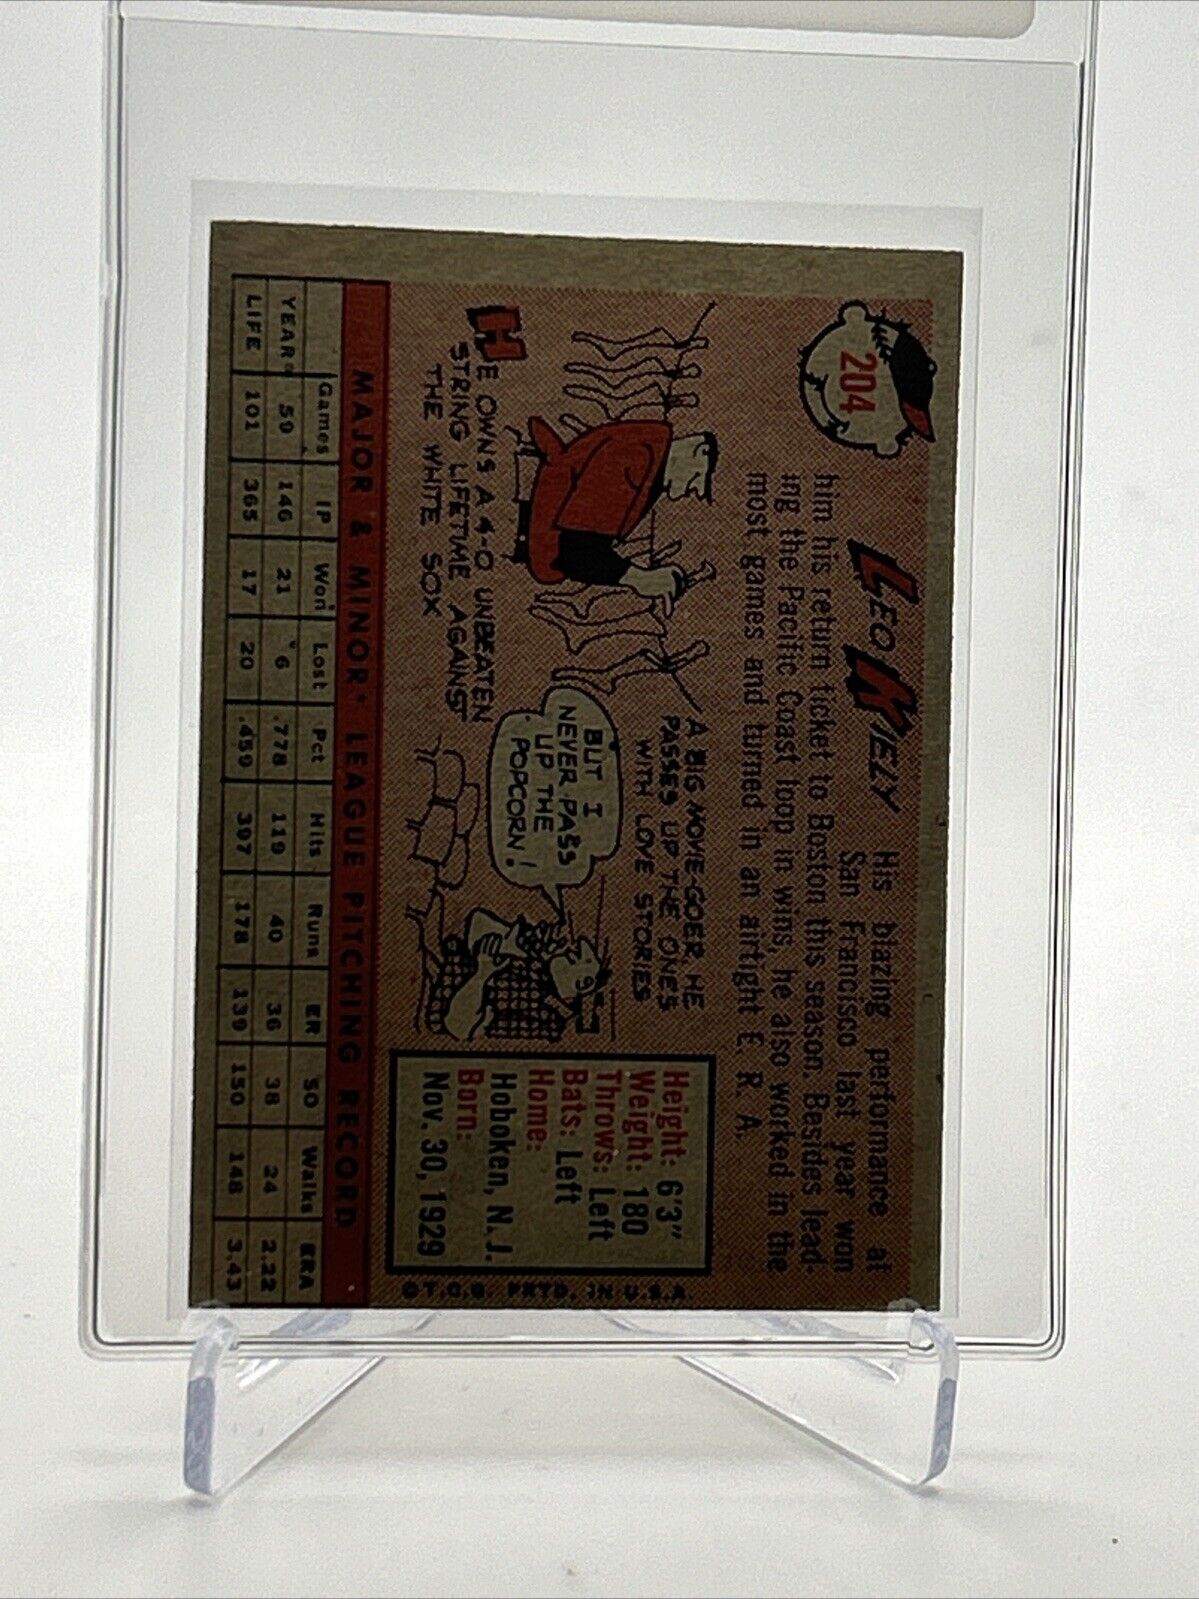 204
LEO KIELY
His blazing performance at
San Francisco last year won
him his return ticket to Boston this season. Besides lead-
ing the Pacific Coast loop in wins, he also worked in the
most games and turned in an airtight E. R. A.
HE OWNS A 4-0 UNBEATEN
STRING LIFETIME AGAINST
THE WHITE SOX
A BIG MOVIE-GOER, HE
PASSES UP THE ONES
WITH LOVE STORIES
BUT I
NEVER PASS
UP THE
POPCORN!
Height: 6'3"
Weight: 180
Throws: Left
Bats: Left
Home:
Hoboken, N. J.
Born:
Nov. 30, 1929
© T.C.G. PRTD. IN U.S.A.
MAJOR & MINOR* LEAGUE PITCHING RECORD
Games IP Won Lost Pct Hits Runs ER SO Walks ERA
YEAR* 59 146 21 6 .778 119 40 36 38 24 2.22
LIFE 101 365 17 20 .459 397 178 139 150 148 3.43